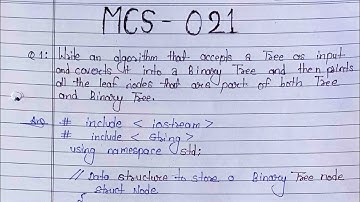 MCS-021
Q.1: Write an algorithm that accepts a Tree as input
and coverts it into a Binary Tree and then prints
all the leaf nodes that are part of both Tree
and Binary Tree.
Ans # include < iostream >
# include < string >
using namespace std;
// Data structure to store a Binary Tree node
struct Node
{